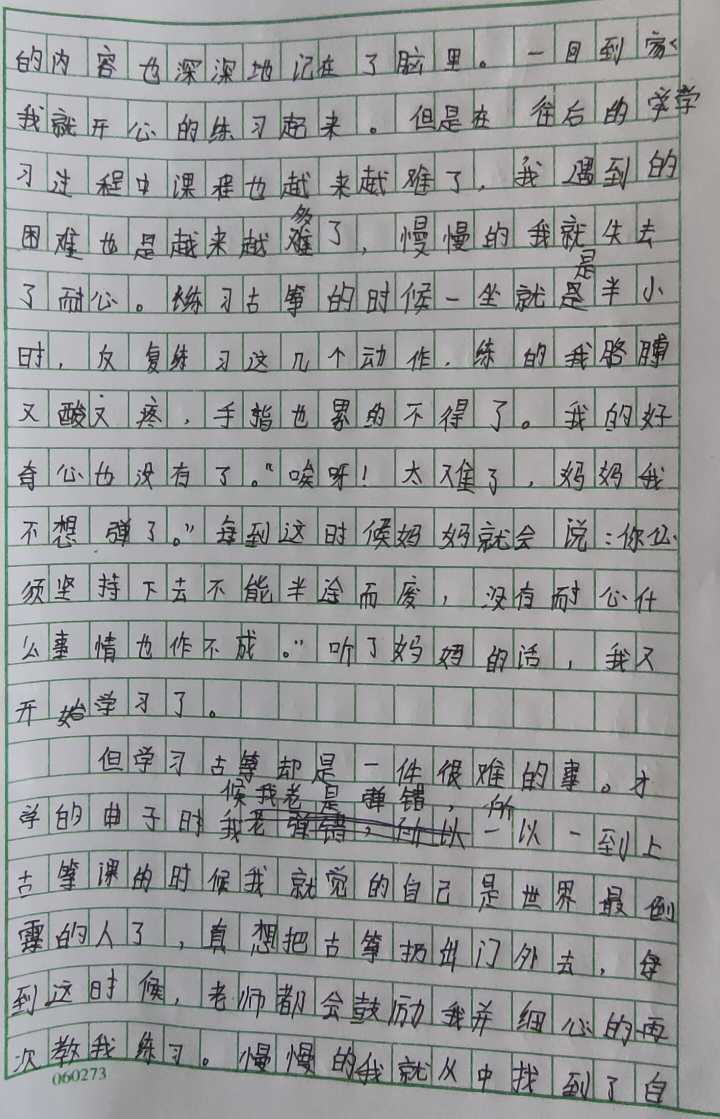 的内容也深深地记在了脑里。一回到家
我就开心的练习起来。但是在往后的学
习过程中课程也越来越难了，我遇到的
困难也是越来越多了，慢慢的我就失去
了耐心。练习古筝的时候一坐就是半小
时，反复练习这几个动作，练的我胳膊
又酸又疼，手指也累的不得了。我的好
奇心也没有了。“唉呀！太难了，妈妈我
不想弹了。”每到这时候妈妈就会说：你必
须坚持下去不能半途而废，没有耐心什
么事情也作不成。”听了妈妈的话，我又
开始学习了。
但学习古筝却是一件很难的事。才
学的曲子时候我老是弹错，所以一到上
古筝课的时候我就觉的自己是世界最倒
霉的人了，真想把古筝扔出门外去，每
到这时候，老师都会鼓励我并细心的再
次教我练习。慢慢的我就从中找到了自
060273